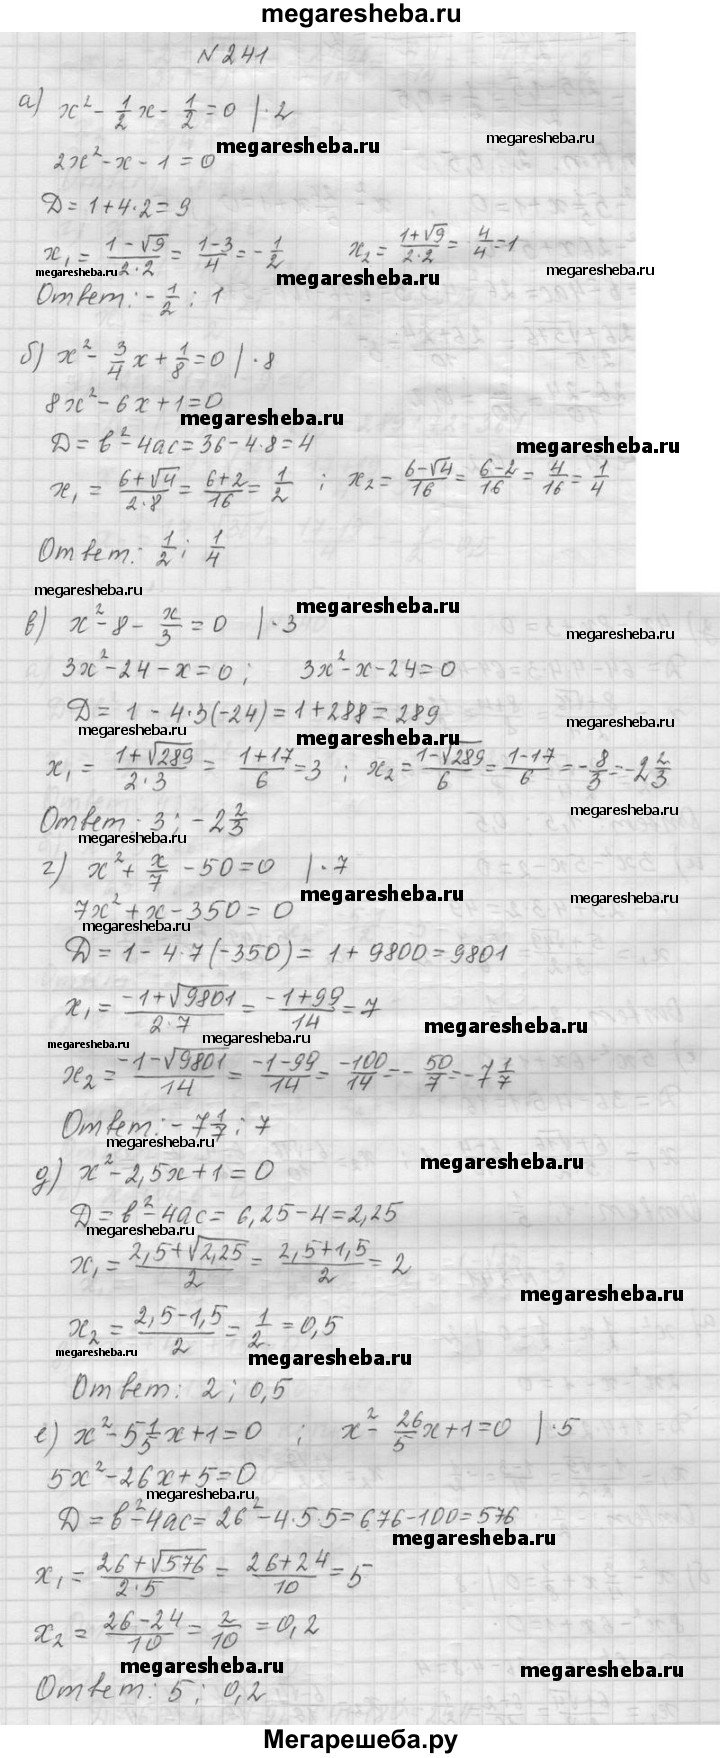 megaresheba.ru
N 241
а) x² - 1/2 x - 1/2 = 0 | · 2
megaresheba.ru
megaresheba.ru
2x² - x - 1 = 0
D = 1 + 4·2 = 9
x₁ = (1 - √9)/(2·2) = (1-3)/4 = - 1/2 x₂ = (1+√9)/(2·2) = 4/4 = 1
megaresheba.ru
megaresheba.ru
megaresheba.ru
Ответ: - 1/2 ; 1
б) x² - 3/4 x + 1/8 = 0 | · 8
megaresheba.ru
8x² - 6x + 1 = 0
megaresheba.ru
D = b² - 4ac = 36 - 4·8 = 4
megaresheba.ru
x₁ = (6+√4)/(2·8) = (6+2)/16 = 1/2 ; x₂ = (6-√4)/16 = (6-2)/16 = 4/16 = 1/4
Ответ: 1/2 ; 1/4
megaresheba.ru
megaresheba.ru
в) x² - 8 - x/3 = 0 | · 3
megaresheba.ru
3x² - 24 - x = 0 ; 3x² - x - 24 = 0
D = 1 - 4·3(-24) = 1 + 288 = 289
megaresheba.ru
megaresheba.ru
megaresheba.ru
x₁ = (1+√289)/(2·3) = (1+17)/6 = 3 ; x₂ = (1-√289)/6 = (1-17)/6 = - 8/3 = -2 2/3
Ответ: 3 ; -2 2/3
megaresheba.ru
megaresheba.ru
г) x² + x/7 - 50 = 0 | · 7
megaresheba.ru
megaresheba.ru
7x² + x - 350 = 0
megaresheba.ru
D = 1 - 4·7(-350) = 1 + 9800 = 9801
x₁ = (-1+√9801)/(2·7) = (-1+99)/14 = 7
megaresheba.ru
megaresheba.ru
x₂ = (-1-√9801)/14 = (-1-99)/14 = -100/14 = - 50/7 = -7 1/7
Ответ: -7 1/7 ; 7
megaresheba.ru
megaresheba.ru
д) x² - 2,5x + 1 = 0
D = b² - 4ac = 6,25 - 4 = 2,25
megaresheba.ru
x₁ = (2,5+√2,25)/2 = (2,5+1,5)/2 = 2
megaresheba.ru
x₂ = (2,5-1,5)/2 = 1/2 = 0,5
megaresheba.ru
megaresheba.ru
Ответ: 2 ; 0,5
е) x² - 5 1/5 x + 1 = 0 ; x² - 26/5 x + 1 = 0 | · 5
5x² - 26x + 5 = 0
megaresheba.ru
D = b² - 4ac = 26² - 4·5·5 = 676 - 100 = 576
megaresheba.ru
x₁ = (26+√576)/(2·5) = (26+24)/10 = 5
x₂ = (26-24)/10 = 2/10 = 0,2
megaresheba.ru
megaresheba.ru
Ответ: 5 ; 0,2
Мегарешеба.ру